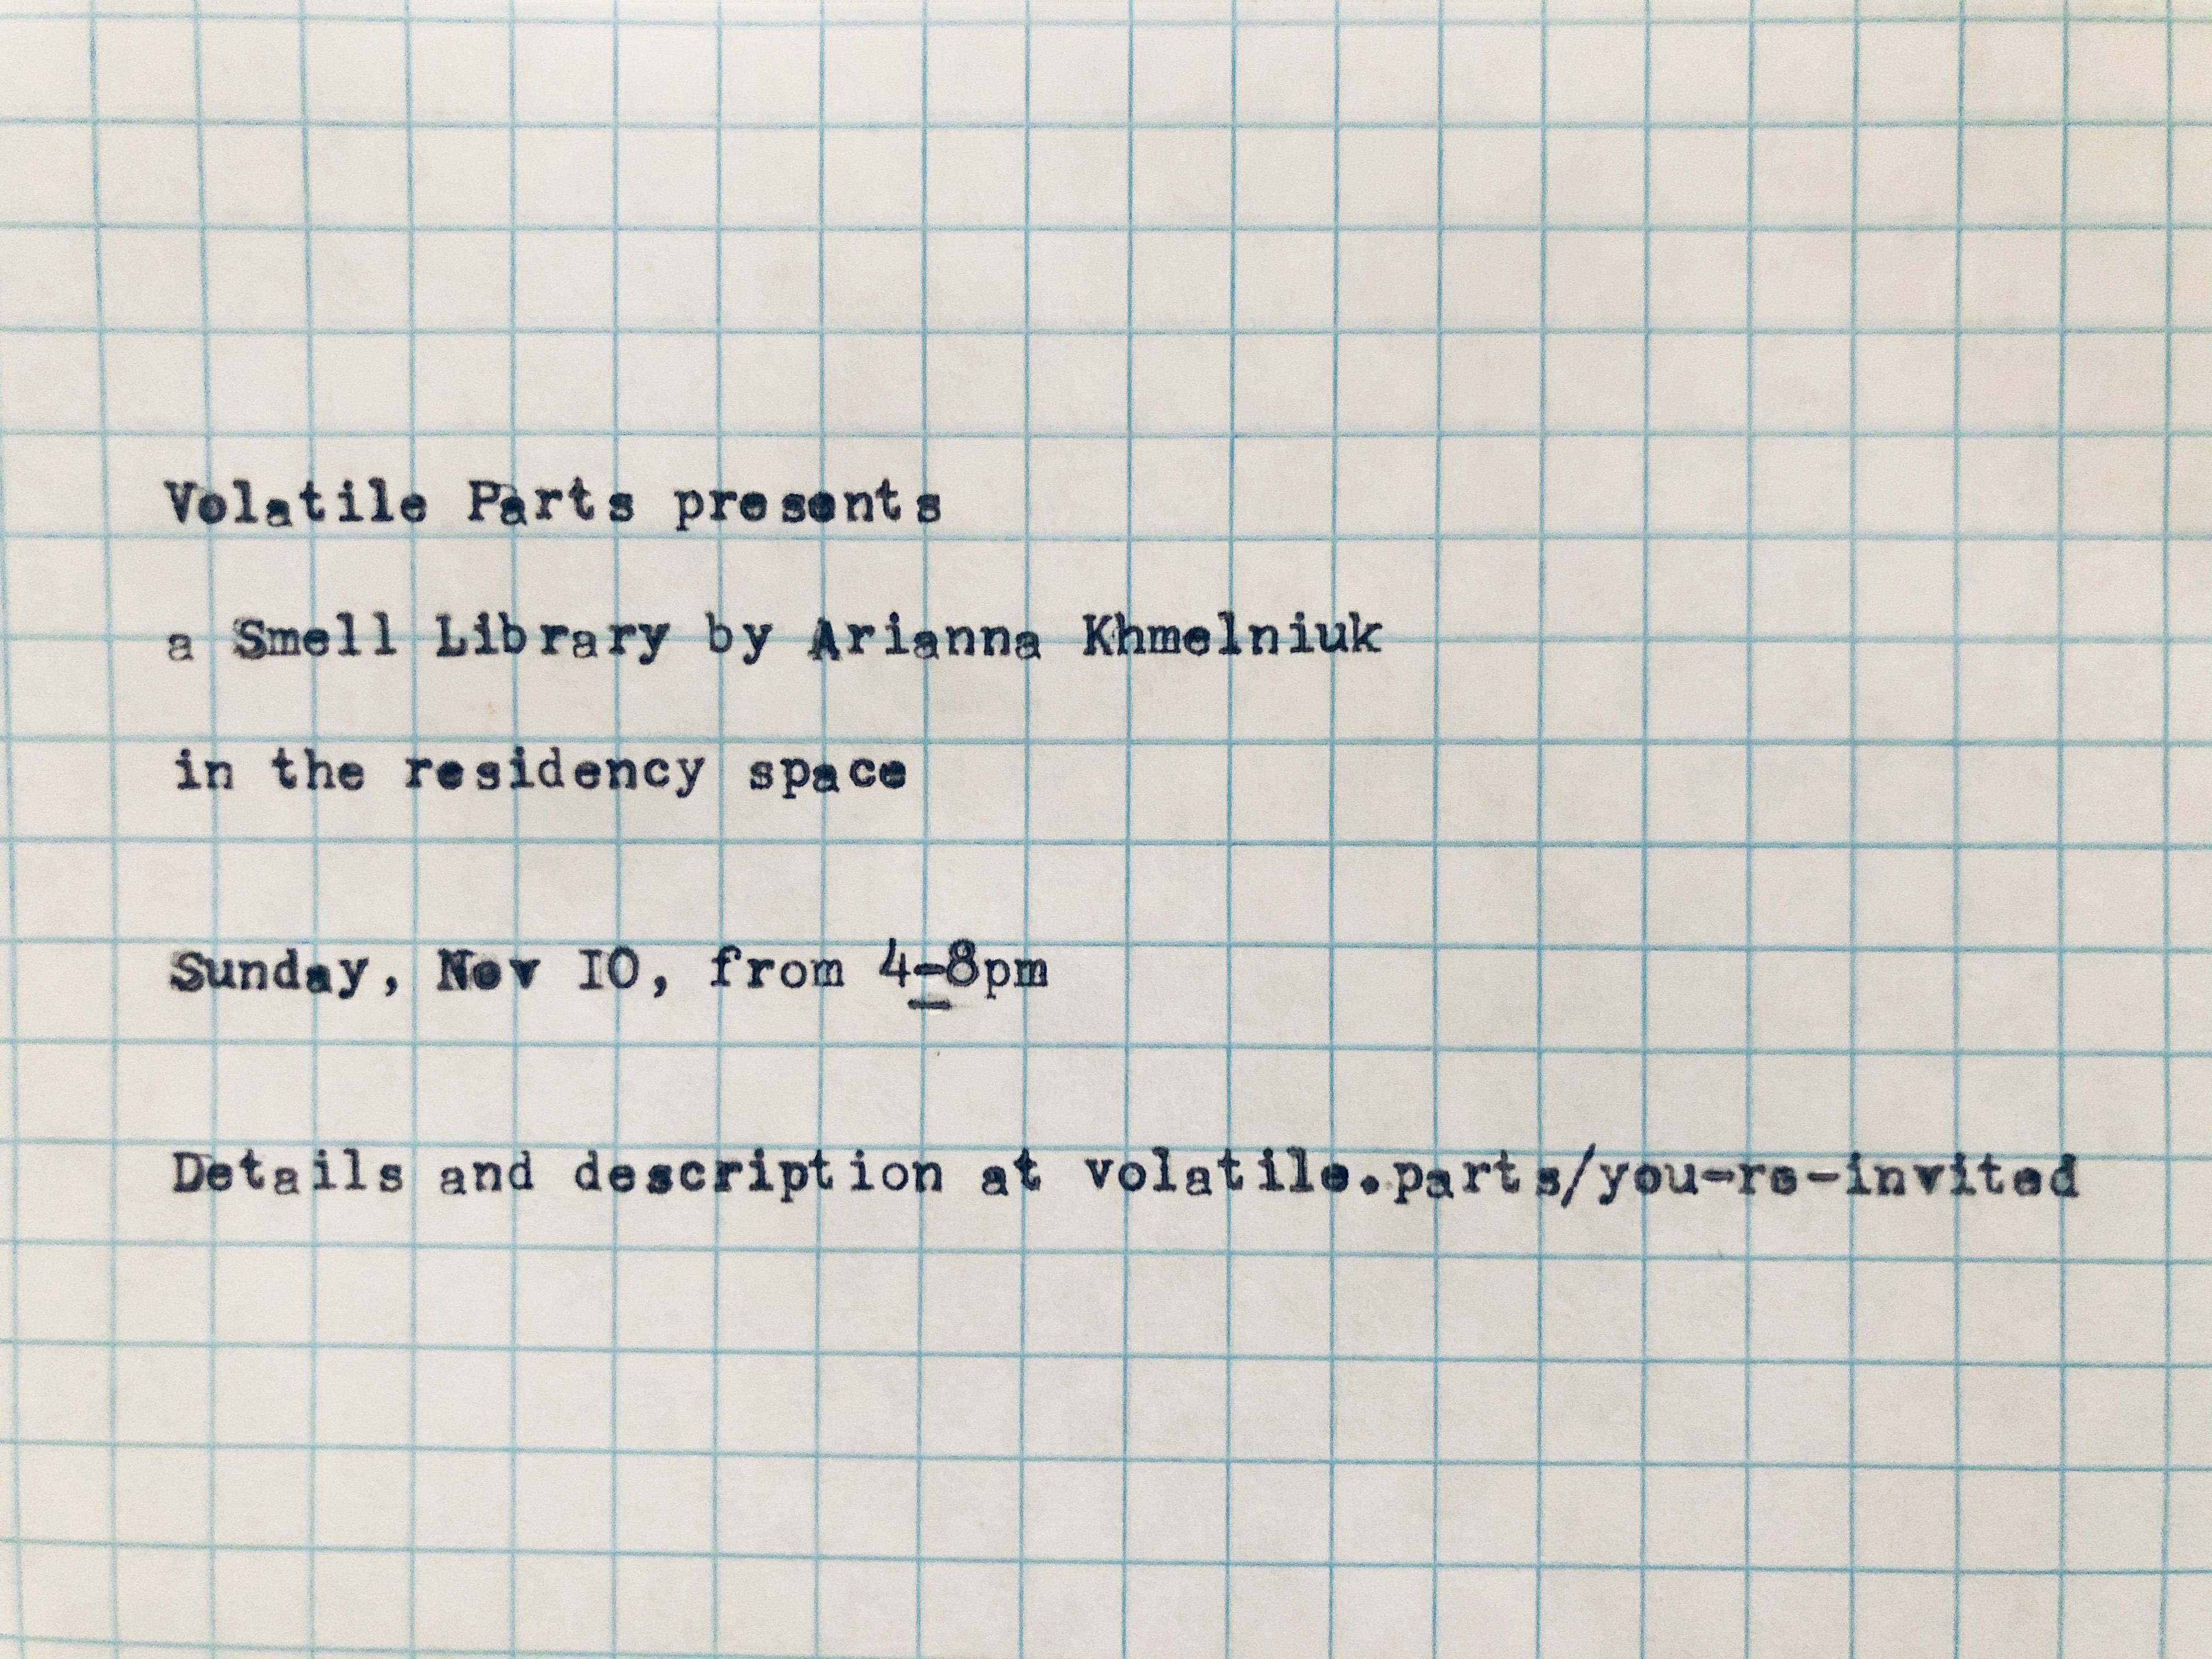 Volatile Parts presents
a Smell Library by Arianna Khmelniuk
in the residency space
Sunday, Nov IO, from 4-8pm
Details and description at volatile.parts/you-re-invited